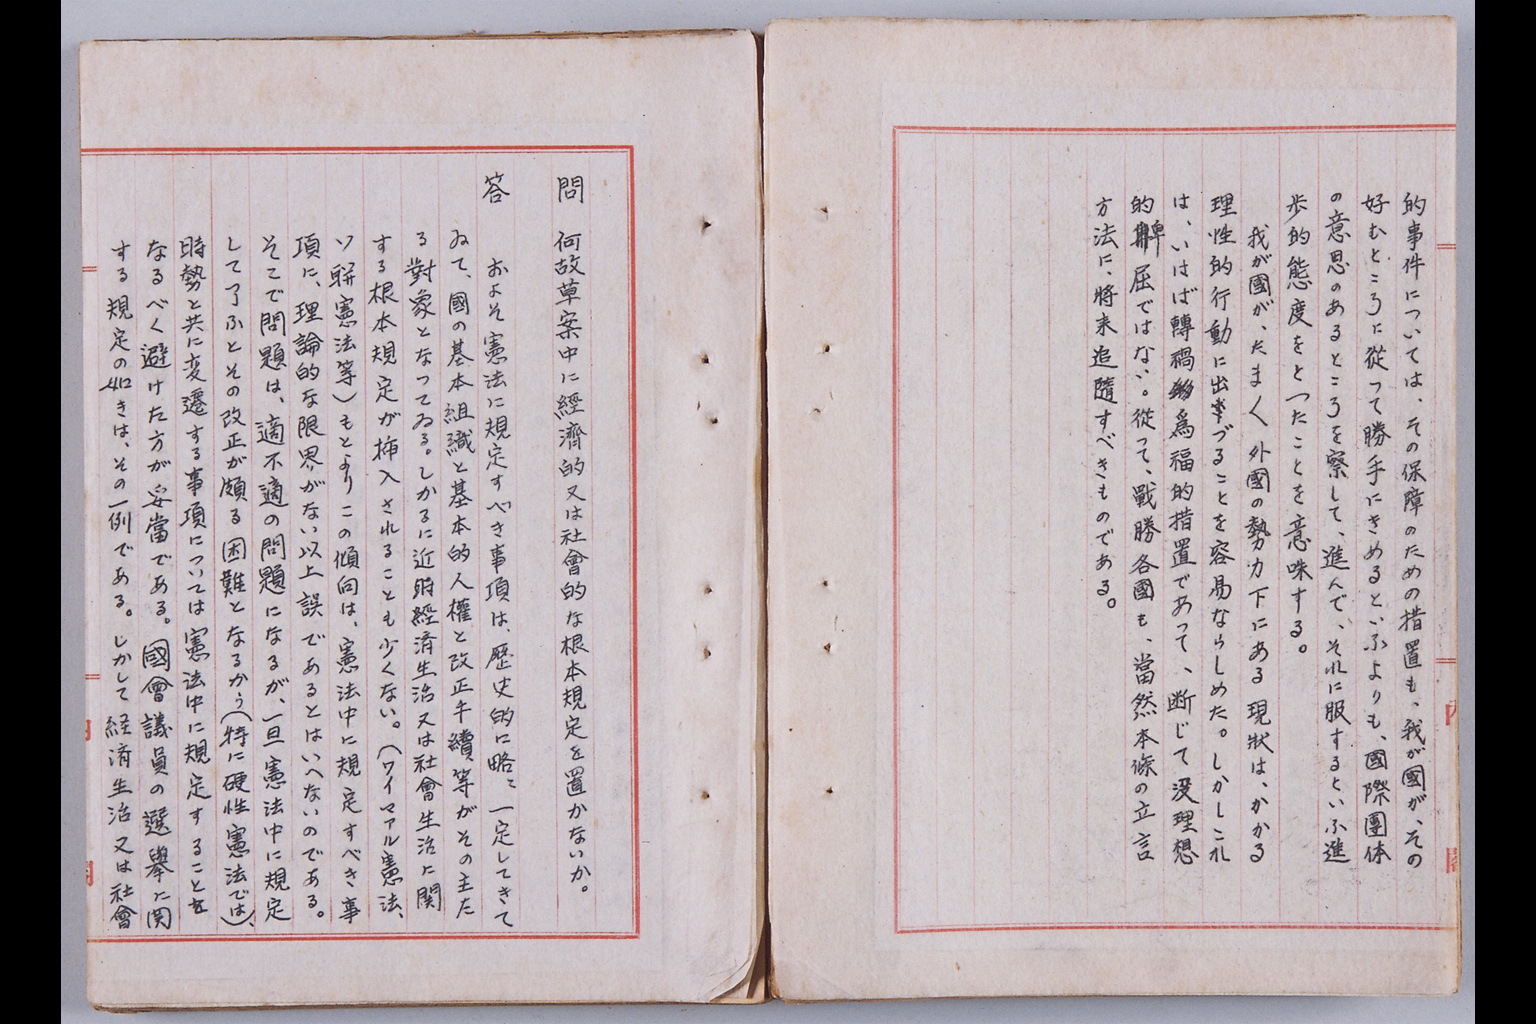 的事件については、その保障のための措置も、我が國が、その
好むところに從つて勝手にきめるといふよりも、國際團体
の意思のあるところを察して、進んで、それに服するといふ進
歩的態度をとつたことを意味する。
我が國が、たまく外國の勢力下にある現状は、かかる
理性的行動に出づることを容易ならしめた。しかしこれ
は、いはば轉禍爲福的措置であつて、断じて没理想
的卑屈ではない。從つて、戰勝各國も、當然本條の立言
方法に、將来追隨すべきものである。
問 何故草案中に經濟的又は社會的な根本規定を置かないか。
答 およそ憲法に規定すべき事項は、歴史的に略〻一定してきて
ゐて、國の基本組織と基本的人權と改正手續等がその主た
る對象となつてゐる。しかるに近時經済生活又は社會生活に関
する根本規定が挿入されることも少くない。（ワイマアル憲法、
ソ聨憲法等）もとよりこの傾向は、憲法中に規定すべき事
項に、理論的な限界がない以上誤であるとはいへないのである。
そこで問題は、適不適の問題になるが、一旦憲法中に規定
して了ふとその改正が頗る困難となるから（特に硬性憲法では）、
時勢と共に変遷する事項については憲法中に規定することを
なるべく避けた方が妥當である。國會議員の選擧に関
する規定の如きは、その一例である。しかして経済生活又は社會